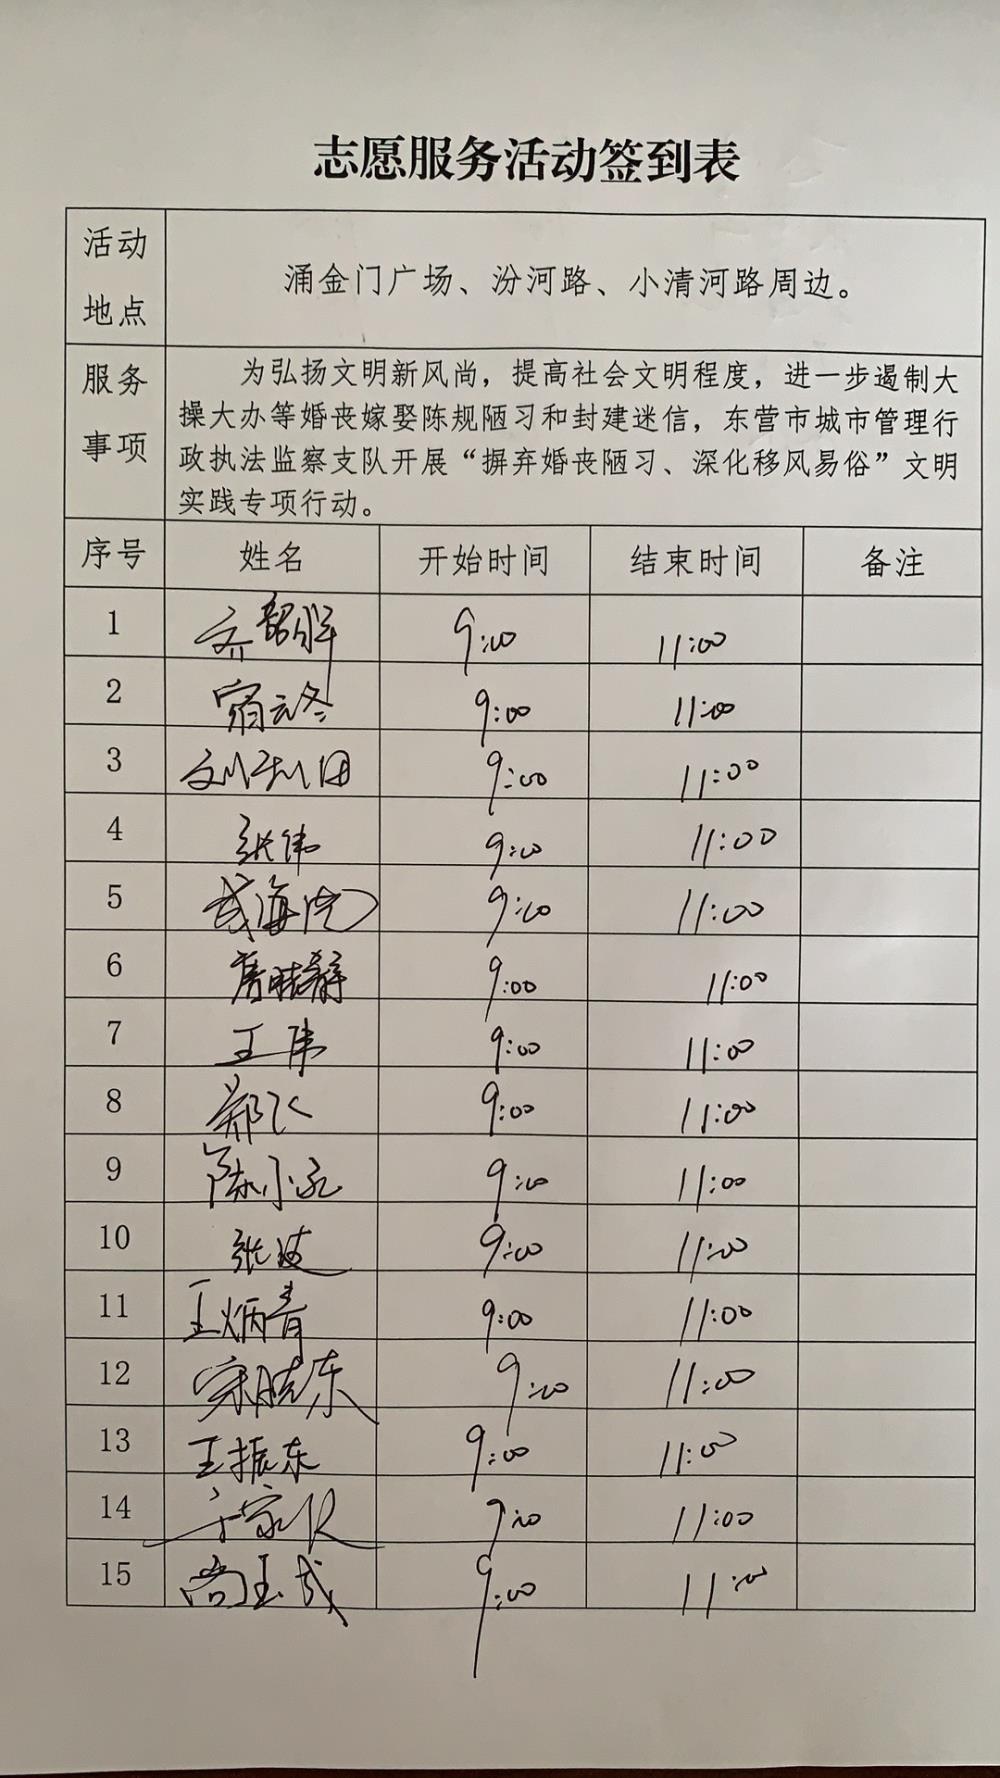 志愿服务活动签到表
活动地点 涌金门广场、汾河路、小清河路周边。
服务事项 为弘扬文明新风尚，提高社会文明程度，进一步遏制大
操大办等婚丧嫁娶陈规陋习和封建迷信，东营市城市管理行
政执法监察支队开展“摒弃婚丧陋习、深化移风易俗”文明
实践专项行动。
序号 姓名 开始时间 结束时间 备注
1 9:00 11:00
2 宿云冬 9:00 11:00
3 9:00 11:00
4 张伟 9:00 11:00
5 9:00 11:00
6 9:00 11:00
7 王伟 9:00 11:00
8 郑飞 9:00 11:00
9 陈小永 9:00 11:00
10 张波 9:00 11:00
11 王炳青 9:00 11:00
12 宋晓东 9:00 11:00
13 王振东 9:00 11:00
14 9:00 11:00
15 尚玉武 9:00 11:00